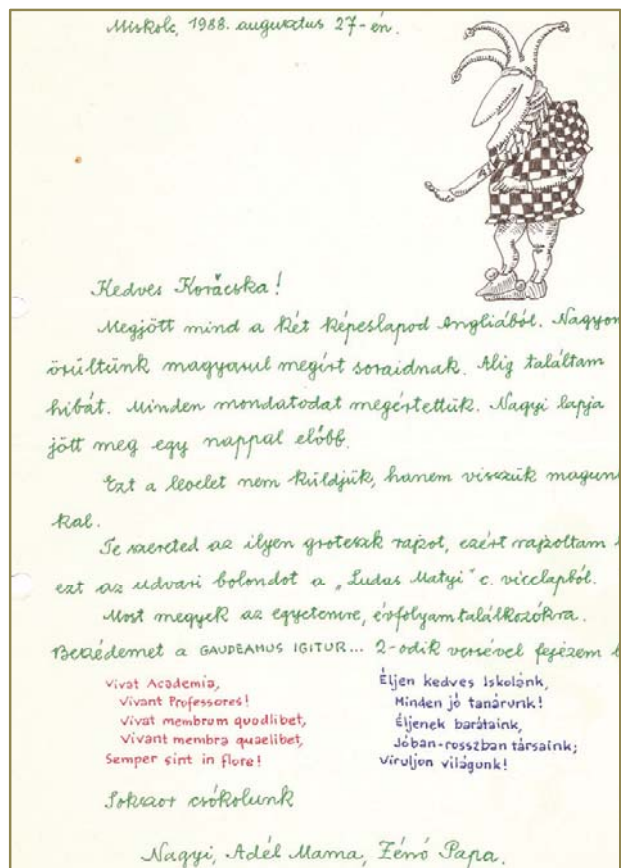 Miskolc, 1988. augusztus 27-én.
Kedves Korácska!
Megjött mind a két képeslapod Angliából. Nagyon
örültünk magyarul megírt soraidnak. Alig találtam
hibát. Minden mondatodat megértettük. Nagyi lapja
jött meg egy nappal előbb.
Ezt a levelet nem küldjük, hanem visszük magun
kal.
Te szereted az ilyen groteszk rajzot, ezért rajzoltam
ezt az udvari bolondot a „Ludas Matyi" c. vicclapból.
Most megyek az egyetemre, évfolyamtalálkozókra.
Beszédemet a GAUDEAMUS IGITUR... 2-odik versével fejezem
Vivat Academia,
Vivant Professores!
Vivat membrum quodlibet,
Vivant membra quaelibet,
Semper sint in flore!
Éljen kedves Iskolánk,
Minden jó tanárunk!
Éljenek barátaink,
Jóban-rosszban társaink;
Viruljon világunk!
Sokszor csókolunk
Nagyi, Adél Mama, Zénó Papa.